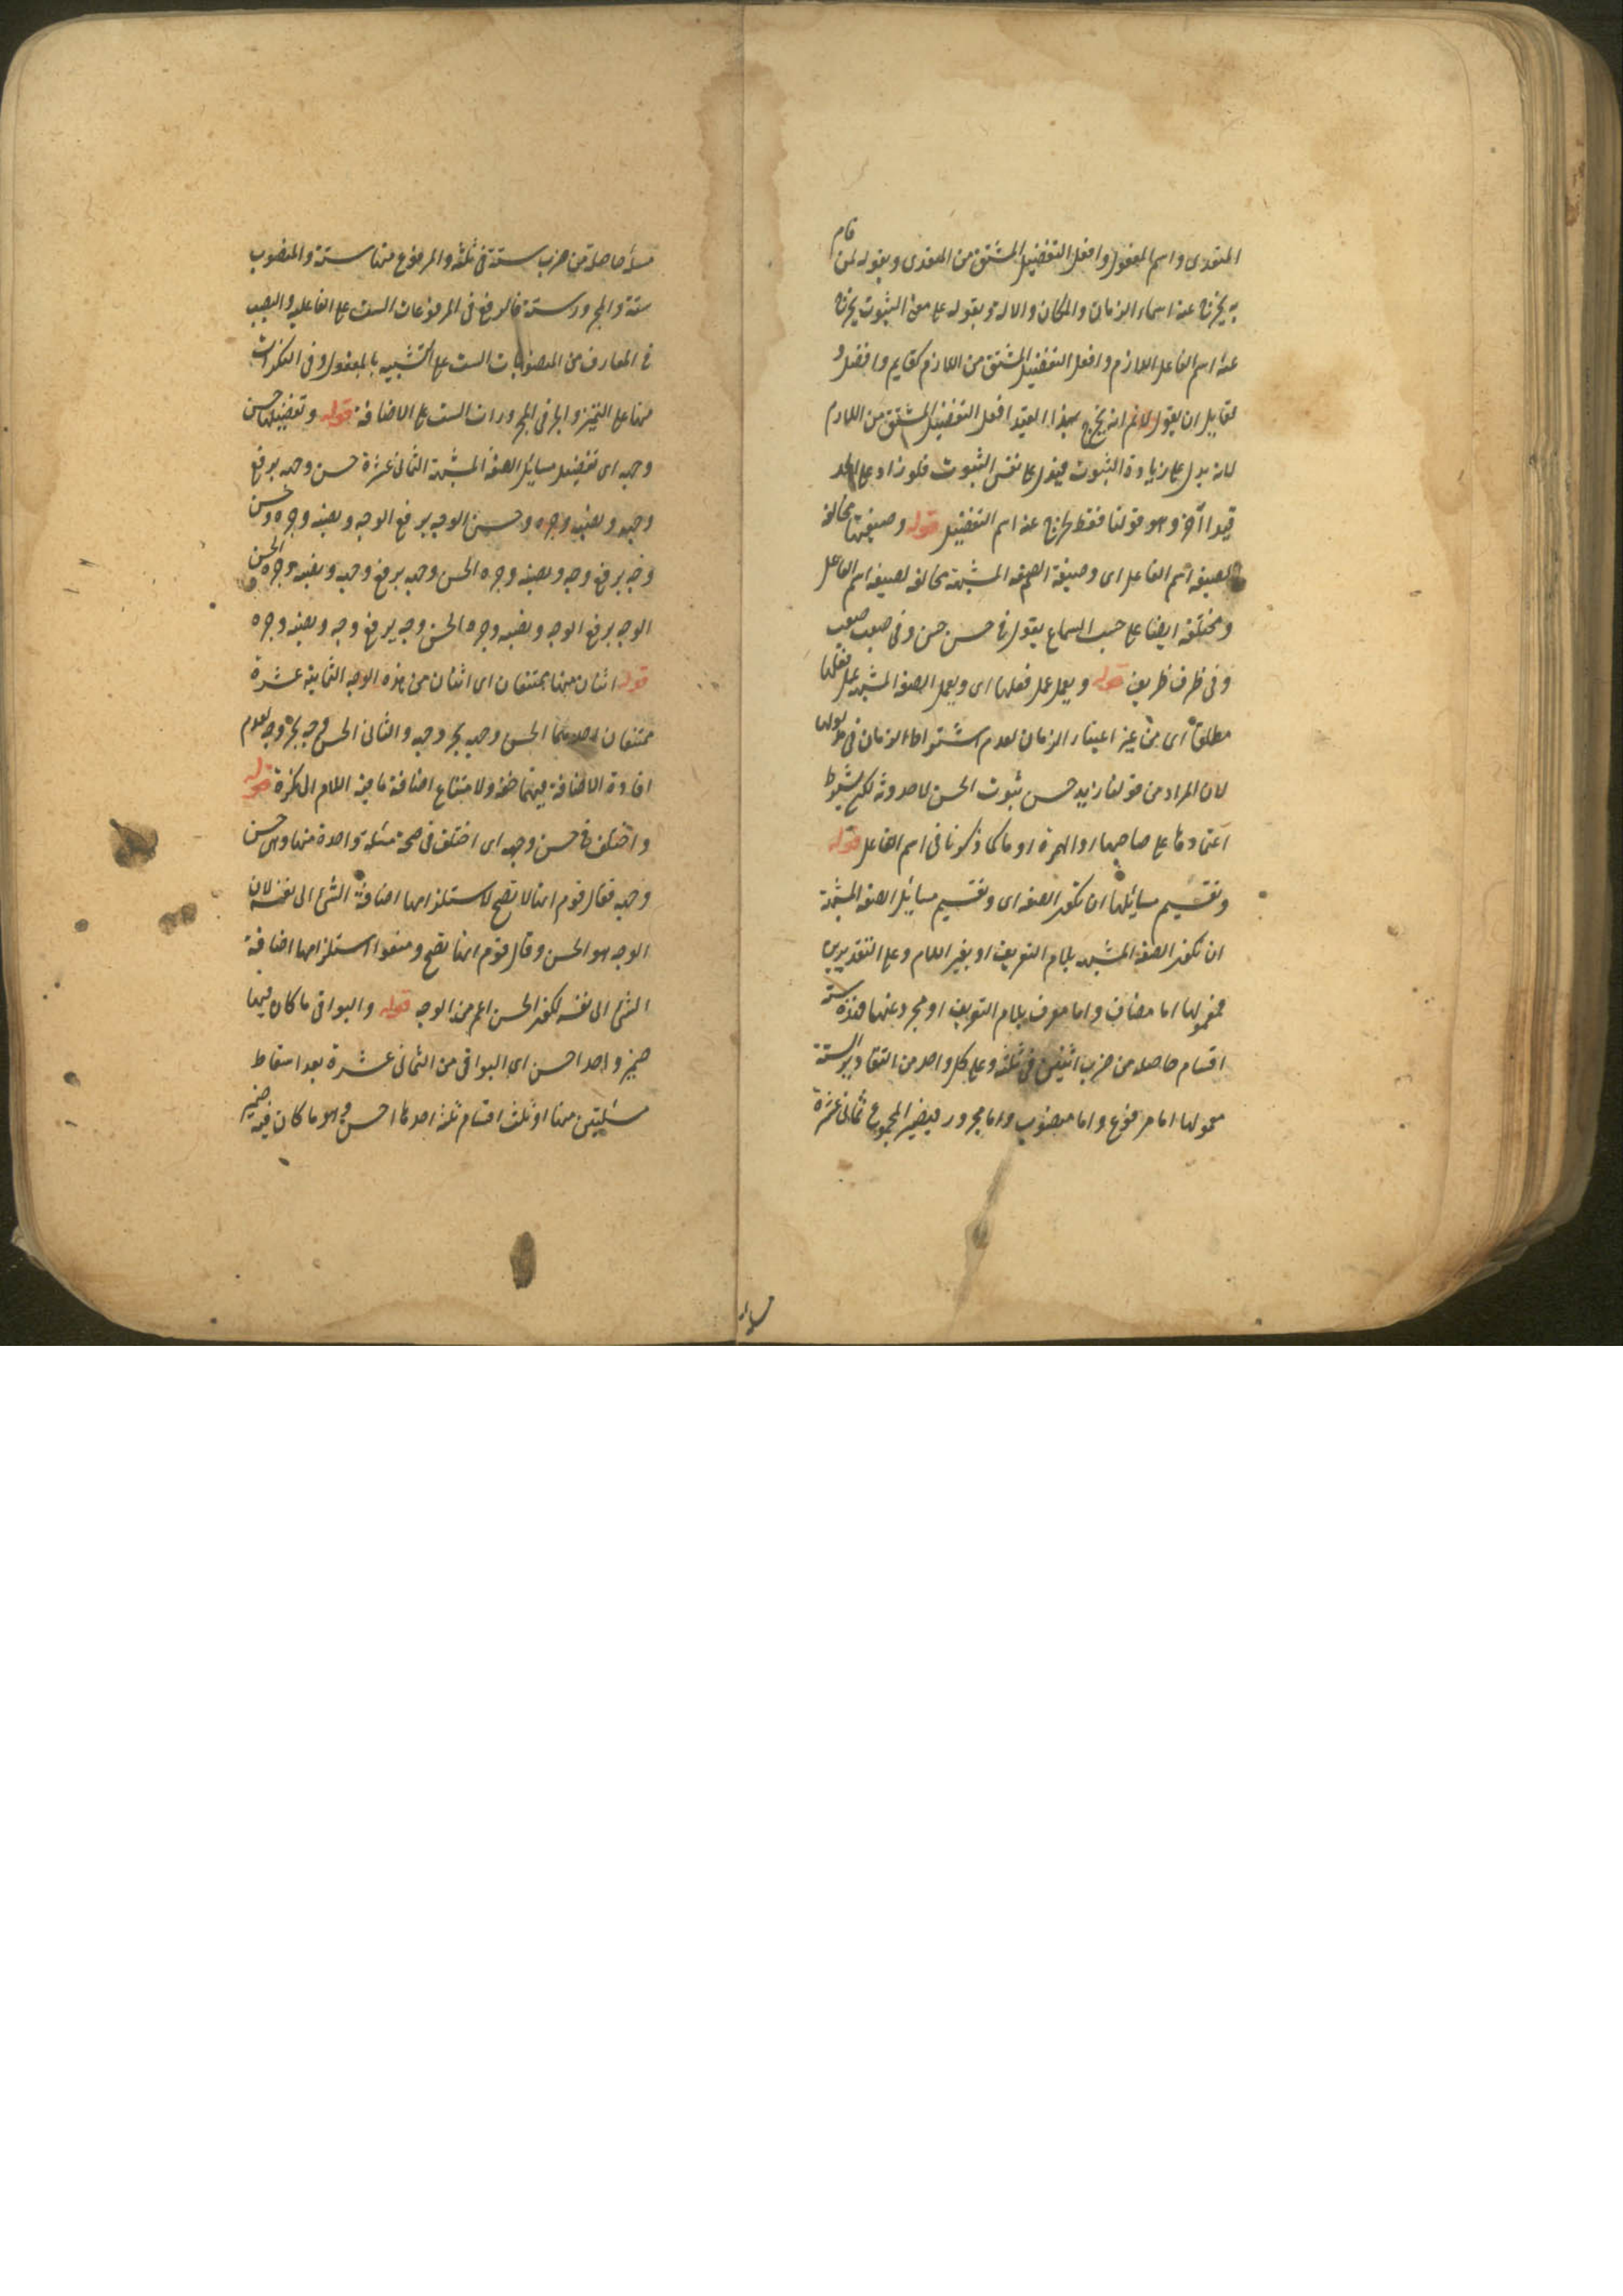 المتعدى واسم المفعول وافعل التفضيل المشتق من المتعدى وبقوله لمن قام
به يخرج عنه اسماء الزمان والمكان والالة وبقوله على معنى الثبوت يخرج
عنه اسم الفاعل اللازم وافعل التفضيل المشتق من اللازم كقايم وافضل و
لقايل ان يقول لانم انه يخرج بهذا القيد افعل التفضيل المشتق من اللازم
لانه يدل على زيادة الثبوت فيدل على نفس الثبوت فلو زاد على الحد
قيدا آخر وهو قولنا فقط لخرج عنه اسم التفضيل قوله وصيغتها مخالفة
لصيغة اسم الفاعل اى وصيغة الصفة المشبهة مخالفة لصيغة اسم الفاعل
ومختلفة ايضا على حسب السماع يقول فى حسن حسن وفى صعب صعب
وفى ظرف ظريف قوله ويعمل عمل فعلها اى ويعمل الصفة المشبهة عمل فعلها
مطلقا اى من غير اعتبار الزمان لعدم اشتراط الزمان فى
لان المراد من قولنا زيد حسن ثبوت الحسن لا حدوثه لكن يشترط
اعتمادها على صاحبها او الهمزة او ما كما ذكرنا فى اسم الفاعل قوله
وتقسيم مسائلها ان تكون الصفة اى وتقسيم مسايل الصفة المشبهة
ان تكون الصفة المشبهة بلام التعريف او بغير اللام وعلى التقديرين
فمعمولها اما مضاف واما معرف بلام التعريف او مجرد عنهما فهذه ستة
اقسام حاصلة من ضرب اثنين فى ثلثة وعلى كل واحد من التقادير الستة
معمولها اما مرفوع واما منصوب واما مجرور فيصير المجموع ثمانى عشرة
مسئلة
مسئلة حاصلة من ضرب ستة فى ثلثة والمرفوع منها ستة والمنصوب
ستة والمجرور ستة فالرفع فى المرفوعات الست على الفاعلية والنصب
فى المعارف من المنصوبات الست على التشبيه بالمفعول وفى النكرات
منها على التمييز والجر فى المجرورات الست على الاضافة قوله وتفصيلها حسن
وجهه اى تفصيل مسايل الصفة المشبهة الثمانى عشرة حسن وجهه برفع
وجهه ونصبه وجره وحسن الوجه برفع الوجه ونصبه وجره وحسن
وجه برفع وجه ونصبه وجره الحسن وجهه برفع وجهه ونصبه وجره الحسن
الوجه برفع الوجه ونصبه وجره الحسن وجه برفع وجه ونصبه وجره
قوله اثنان منها ممتنعان اى اثنان من هذه الوجه الثمانية عشرة
ممتنعان احدهما الحسن وجهه بجر وجهه والثانى الحسن وجه بجر وجه لعدم
افادة الاضافة فيهما خفة ولامتناع اضافة ما فيه اللام الى النكرة قوله
واختلف فى حسن وجهه اى اختلف فى صحة مسئلة واحدة منها وهى حسن
وجهه فقال قوم انها لا تصح لاستلزامها اضافة الشئ الى نفسه لان
الوجه هو الحسن وقال قوم انها تصح ومنعوا استلزامها اضافة
الشئ الى نفسه لكون الحسن اعم من الوجه قوله والبواقى ما كان فيها
ضمير واحد احسن اى البواقى من الثمانى عشرة بعد اسقاط
مسئلتين منها او ثلث اقسام ثلثة احدها احسن وهو ما كان فيه ضمير